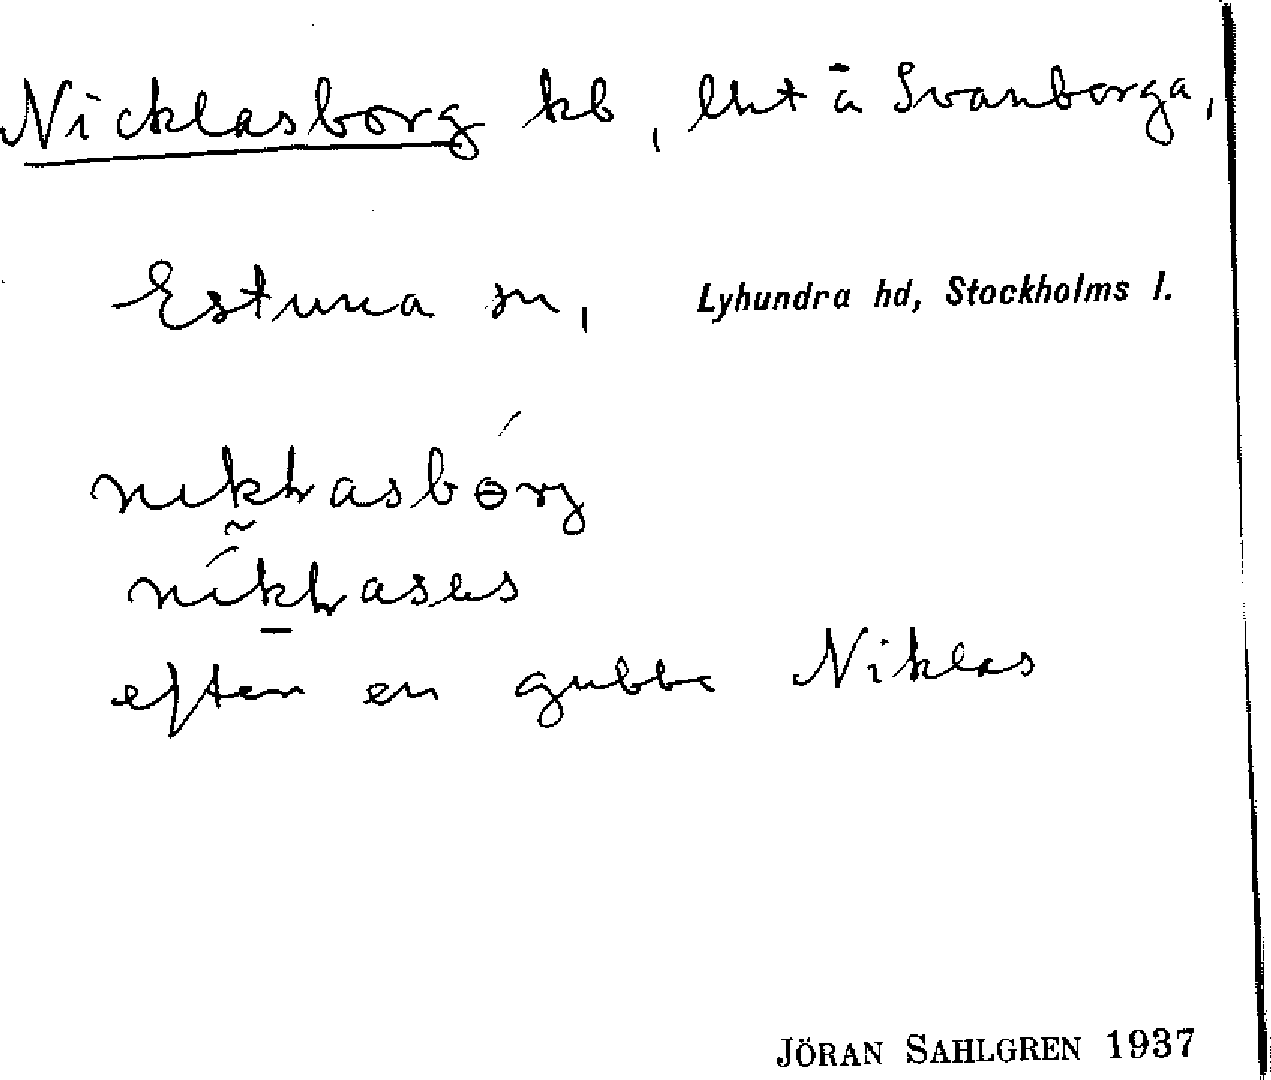 Nicklasborg kb, lht å Svanborga,
Estuna sn, Lyhundra hd, Stockholms l.
nıkłasbórg
níkłasəs
efter en gubbe Niklas
JÖRAN SAHLGREN 1937